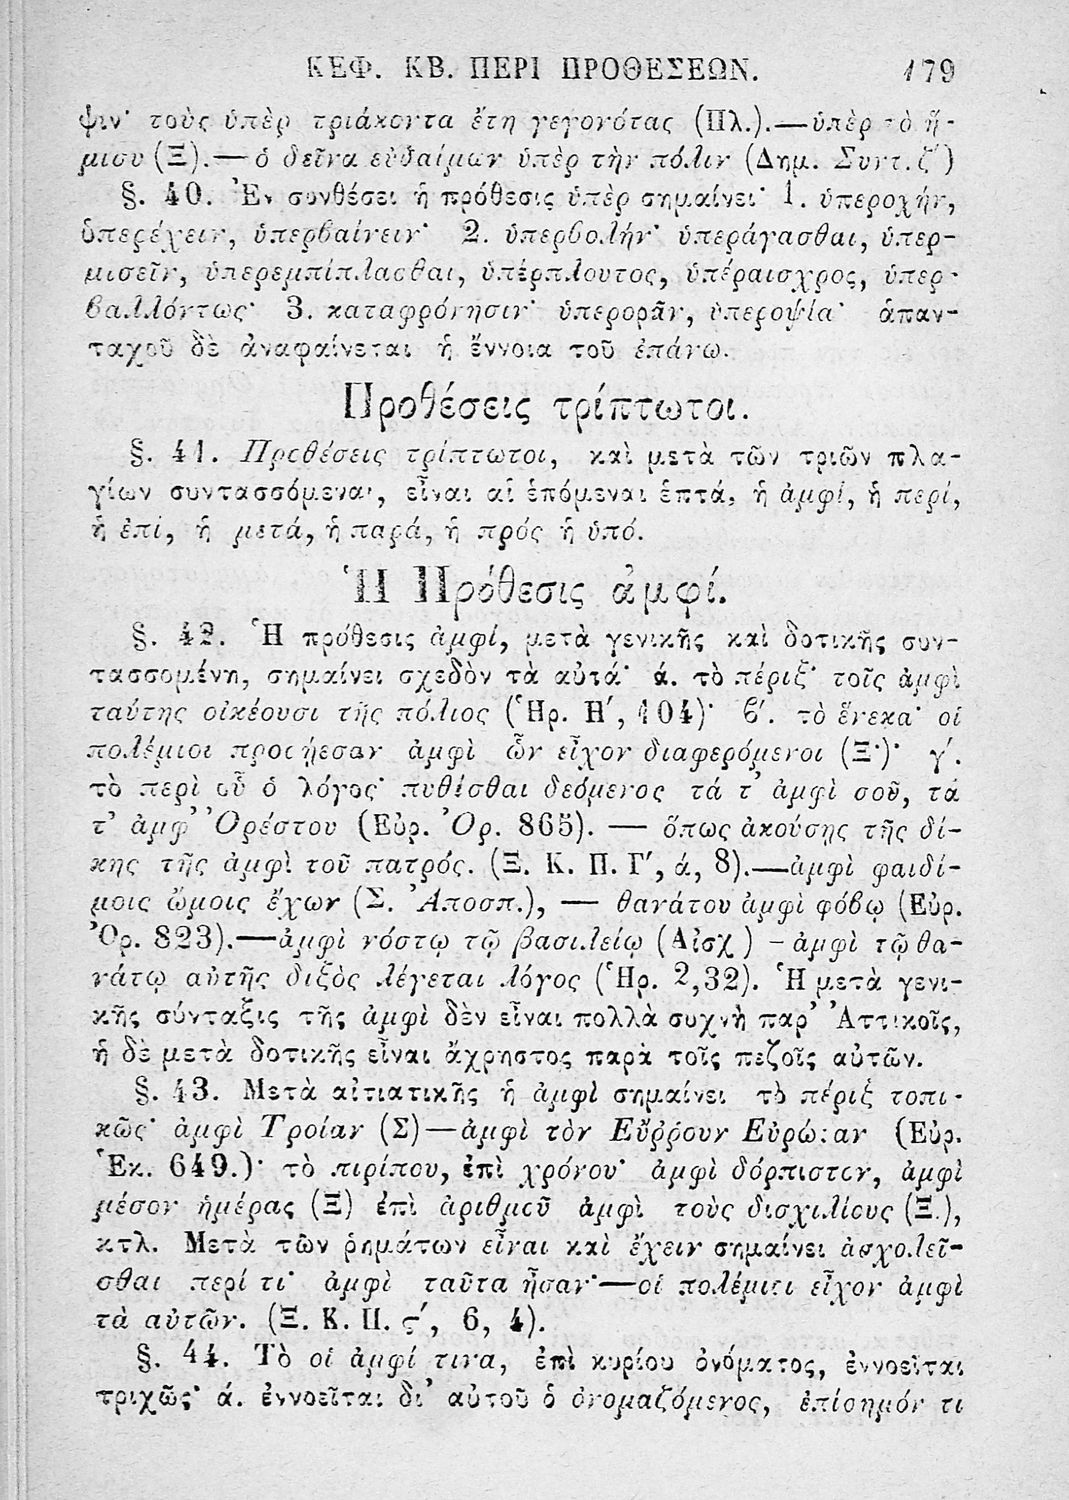 ΚΕΦ. ΚΒ. ΠΕΡΙ ΠΡΟΘΕΣΕΩΝ. 179
ψιν· τοὺς ὑπὲρ τριάκοντα ἔτη γεγονότας (Πλ.).—ὑπὲρ τὸ ἥ-
μισυ (Ξ).—ὁ δεῖνα εὐδαίμων ὑπὲρ τὴν πόλιν (Δημ. Συντ. ζʹ)
§. 40. Ἐν συνθέσει ἡ πρόθεσις ὑπὲρ σημαίνει· 1. ὑπεροχήν,
ὑπερέχειν, ὑπερβαίνειν· 2. ὑπερβολήν· ὑπεράγασθαι, ὑπερ-
μισεῖν, ὑπερεμπίπλασθαι, ὑπέρπλουτος, ὑπέραισχρος, ὑπερ-
βαλλόντως· 3. καταφρόνησιν· ὑπερορᾶν, ὑπεροψία· ἁπαν-
ταχοῦ δὲ ἀναφαίνεται ἡ ἔννοια τοῦ ἐπάνω.
Προθέσεις τρίπτωτοι.
§. 41. Προθέσεις τρίπτωτοι, καὶ μετὰ τῶν τριῶν πλα-
γίων συντασσόμεναι, εἶναι αἱ ἑπόμεναι ἑπτά, ἡ ἀμφί, ἡ περί,
ἡ ἐπί, ἡ μετά, ἡ παρά, ἡ πρός ἡ ὑπό.
Ἡ Πρόθεσις ἀμφί.
§. 42. Ἡ πρόθεσις ἀμφί, μετὰ γενικῆς καὶ δοτικῆς συν-
τασσομένη, σημαίνει σχεδὸν τὰ αὐτά· ά. τὸ πέριξ· τοῖς ἀμφὶ
ταύτης οἰκέουσι τῆς πόλιος (Ἡρ. Ηʹ, 104)· ϐʹ. τὸ ἕνεκα· οἱ
πολέμιοι προσῄεσαν ἀμφὶ ὧν εἶχον διαφερόμενοι (Ξ·)· γʹ.
τὸ περὶ οὗ ὁ λόγος· πυθέσθαι δεόμενος τά τ' ἀμφὶ σοῦ, τά
τ' ἀμφ' Ὀρέστου (Εὐρ. Ὀρ. 865). — ὅπως ἀκούσῃς τῆς δί-
κης τῆς ἀμφὶ τοῦ πατρός. (Ξ. Κ. Π. Γʹ, ά, 8).—ἀμφὶ φαιδί-
μοις ὤμοις ἔχων (Σ. Ἀποσπ.), — θανάτου ἀμφὶ φόβῳ (Εὐρ.
Ὀρ. 823).—ἀμφὶ νόστῳ τῷ βασιλείῳ (Αἰσχ) – ἀμφὶ τῷ θα-
νάτῳ αὐτῆς διξὸς λέγεται λόγος (Ἡρ. 2,32). Ἡ μετὰ γενι-
κῆς σύνταξις τῆς ἀμφὶ δὲν εἶναι πολλὰ συχνὴ παρ' Ἀττικοῖς,
ἡ δὲ μετὰ δοτικῆς εἶναι ἄχρηστος παρὰ τοῖς πεζοῖς αὐτῶν.
§. 43. Μετὰ αἰτιατικῆς ἡ ἀμφὶ σημαίνει τὸ πέριξ τοπι-
κῶς· ἀμφὶ Τροίαν (Σ)—ἀμφὶ τὸν Εὔῤῥουν Εὐρώταν (Εὐρ.
Ἑκ. 649.)· τὸ πιρίπου, ἐπὶ χρόνου· ἀμφὶ δόρπιστον, ἀμφὶ
μέσον ἡμέρας (Ξ) ἐπὶ ἀριθμοῦ ἀμφὶ τοὺς δισχιλίους (Ξ.),
κτλ. Μετὰ τῶν ῥημάτων εἶναι καὶ ἔχειν σημαίνει ἀσχολεῖ-
σθαι περί τι· ἀμφὶ ταῦτα ἦσαν·—οἱ πολέμιοι εἶχον ἀμφὶ
τὰ αὐτῶν. (Ξ. Κ. Π. ςʹ, 6, 4).
§. 44. Τὸ οἱ ἀμφί τινα, ἐπὶ κυρίου ὀνόματος, ἐννοεῖται
τριχῶς· ά. ἐννοεῖται δι' αὐτοῦ ὁ ὀνομαζόμενος, ἐπίσημόν τι